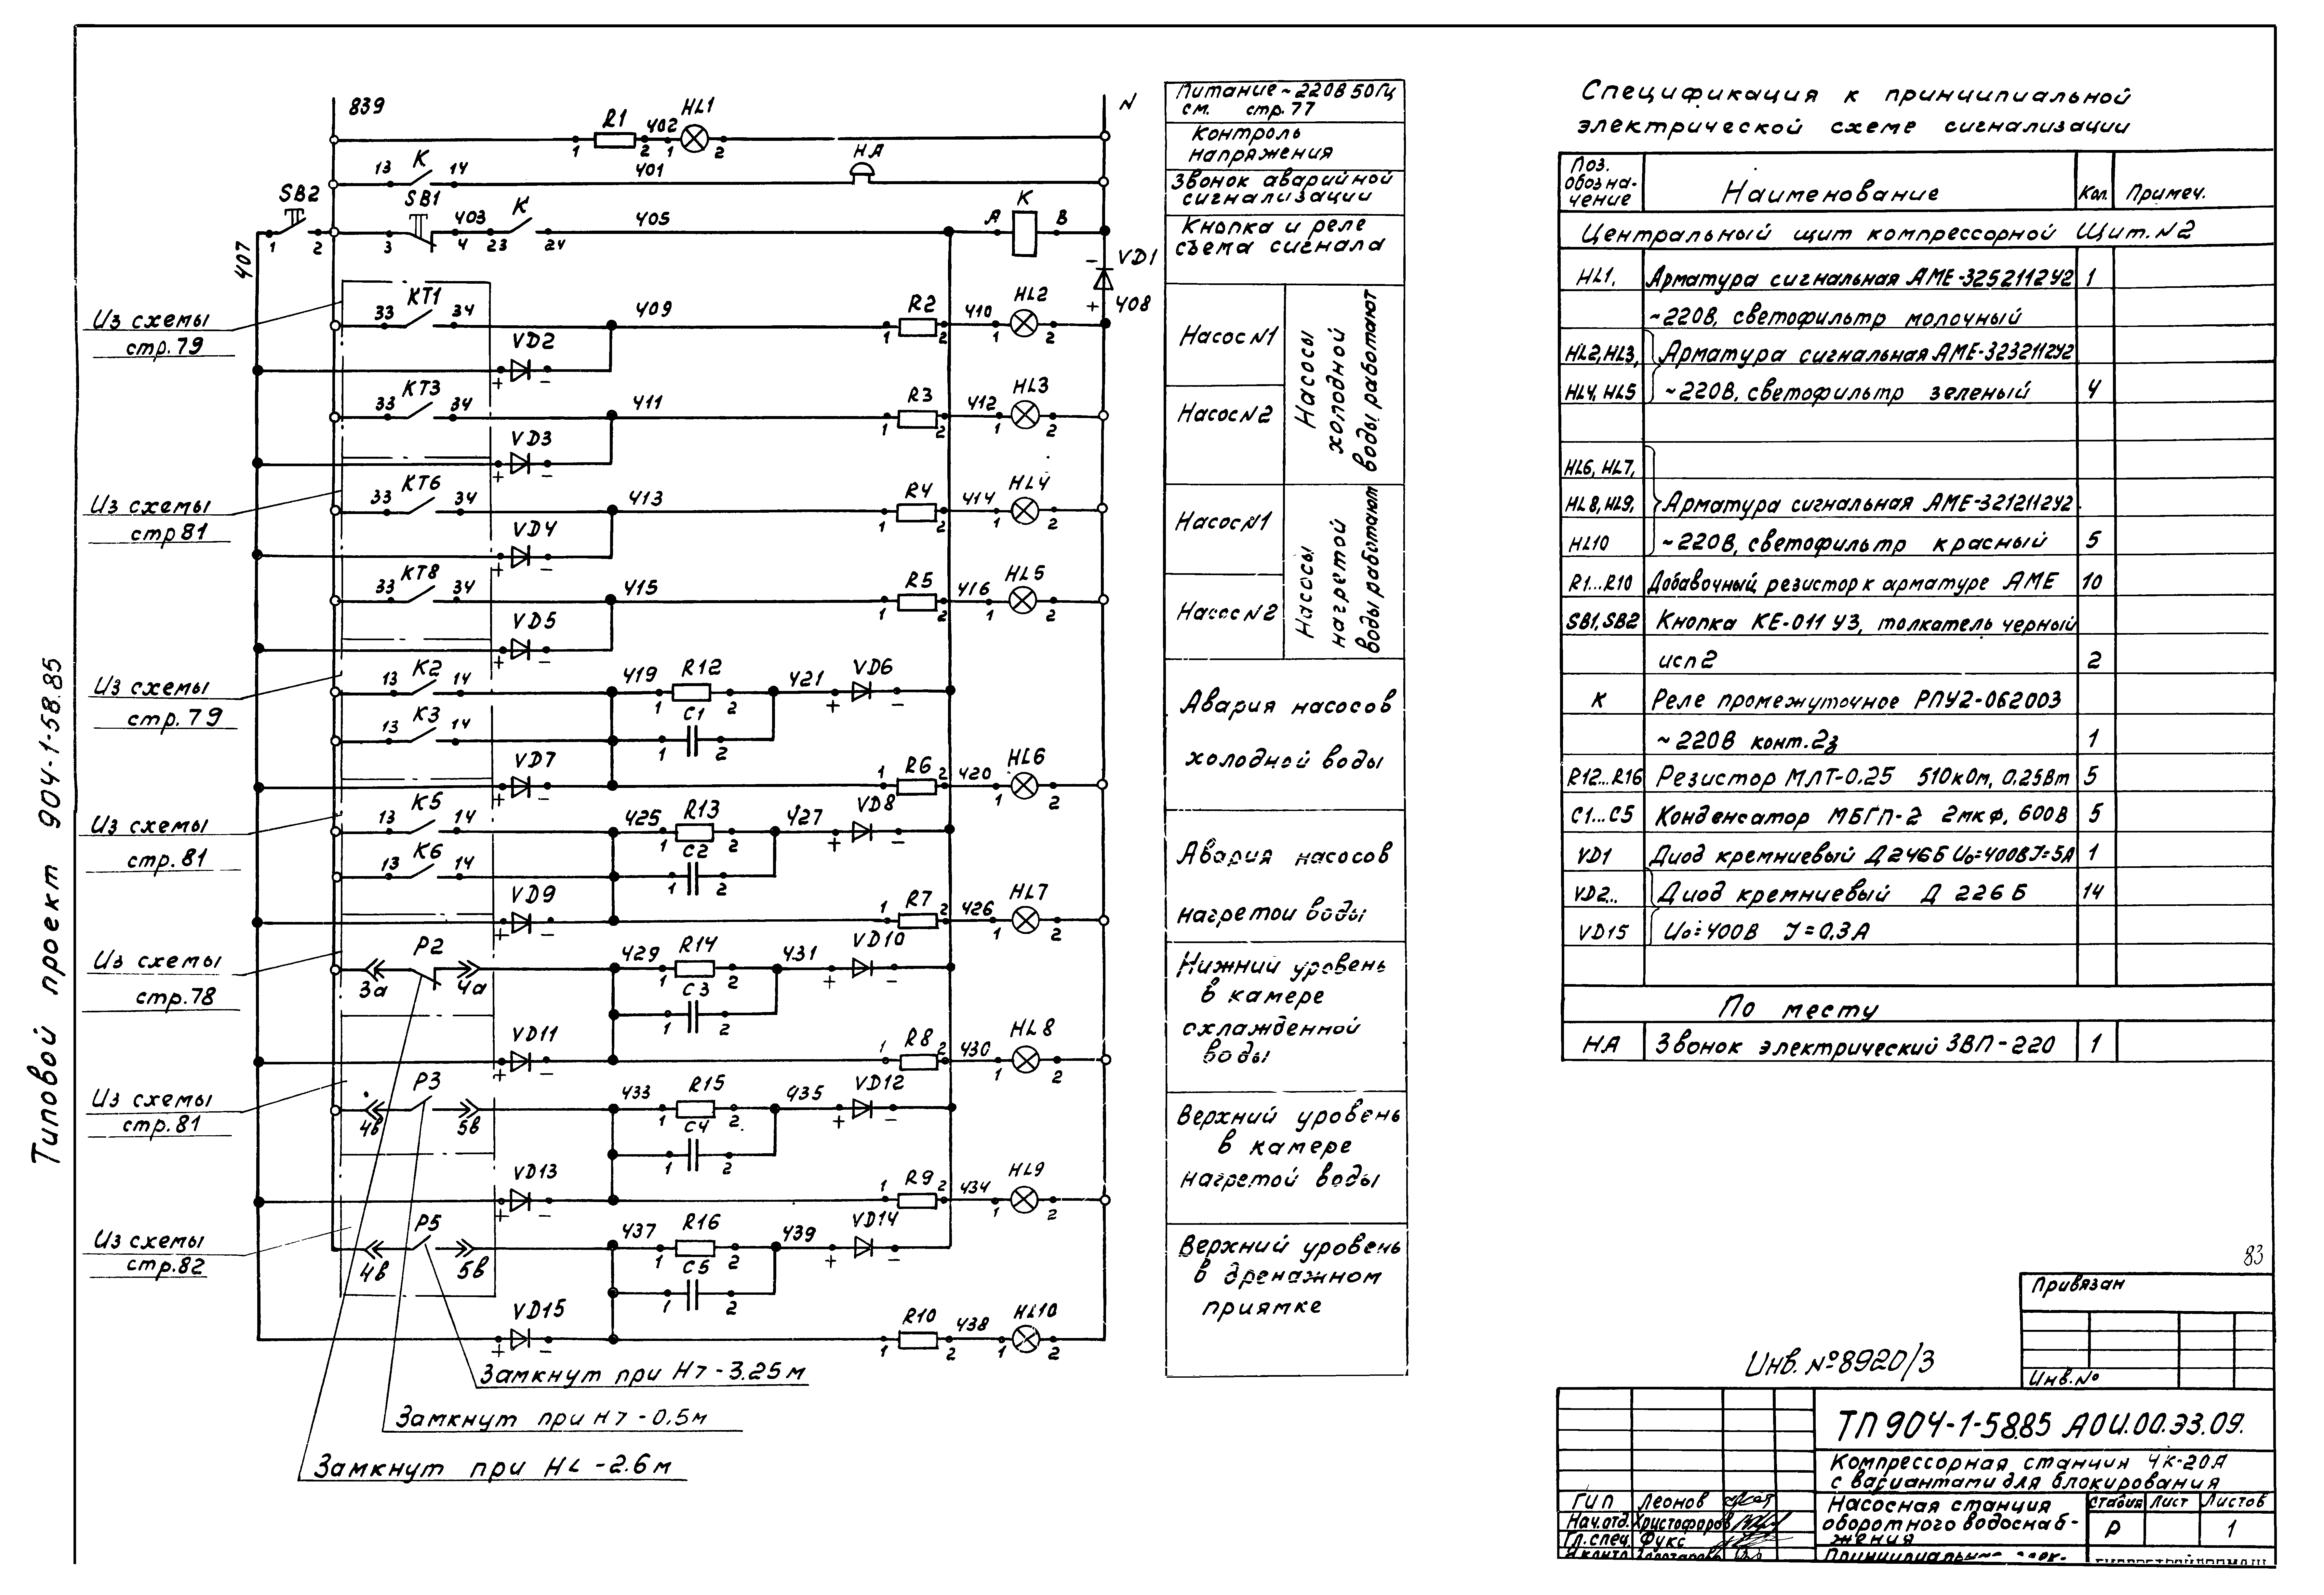 Типовой проект 904-1-58.85
839
N
R1
402
HL1
1
2
1
2
13
K
14
401
HA
SB2
SB1
403
K
405
K
1
2
3
4
23
24
A
B
407
VD1
-
+
408
Из схемы
стр.79
KT1
33
34
409
R2
410
HL2
1
2
1
2
VD2
+
-
KT3
33
34
411
R3
412
HL3
1
2
1
2
VD3
+
-
Из схемы
стр 81
KT6
33
34
413
R4
414
HL4
1
2
1
2
VD4
+
-
KT8
33
34
415
R5
416
HL5
1
2
1
2
VD5
+
-
Из схемы
стр.79
K2
13
14
419
R12
421
VD6
1
2
+
-
K3
13
14
C1
1
2
VD7
+
-
R6
420
HL6
1
2
1
2
Из схемы
стр.81
K5
13
14
425
R13
427
VD8
1
2
+
-
K6
13
14
C2
1
2
VD9
+
-
R7
426
HL7
1
2
1
2
Из схемы
стр.78
P2
3а
4а
429
R14
431
VD10
1
2
+
-
C3
1
2
VD11
+
-
R8
430
HL8
1
2
1
2
Из схемы
стр.81
P3
4в
5в
433
R15
435
VD12
1
2
+
-
C4
1
2
VD13
+
-
R9
434
HL9
1
2
1
2
Из схемы
стр.82
P5
4в
5в
437
R16
439
VD14
1
2
+
-
C5
1
2
VD15
+
-
R10
438
HL10
1
2
1
2
Замкнут при H>-3.25м
Замкнут при H>-0.5м
Замкнут при H<-2.6м
Питание ~220В 50Гц
см. стр.77
Контроль
напряжения
Звонок аварийной
сигнализации
Кнопка и реле
съема сигнала
Насос N1
Насос N2
Насосы
холодной
воды работают
Насос N1
Насос N2
Насосы
нагретой
воды работают
Авария насосов
холодной воды
Авария насосов
нагретой воды
Нижний уровень
в камере
охлажденной
воды
Верхний уровень
в камере
нагретой воды
Верхний уровень
в дренажном
приямке
Спецификация к принципиальной
электрической схеме сигнализации
Поз.
обозна-
чение
Наименование
Кол.
Примеч.
Центральный щит компрессорной Щит.N2
HL1,
Арматура сигнальная АМЕ-325211242
1
~220В, светофильтр молочный
HL2,HL3,
Арматура сигнальная АМЕ-323211242
HL4, HL5
~220В, светофильтр зеленый
4
HL6, HL7,
HL8, HL9,
Арматура сигнальная АМЕ-321211242
HL10
~220В, светофильтр красный
5
R1...R10
Добавочный резистор к арматуре АМЕ
10
SB1, SB2
Кнопка КЕ-011 У3, толкатель черный
исп 2
2
K
Реле промежуточное РПУ2-062003
~220В конт.2з
1
R12...R16
Резистор МЛТ-0.25 510кОм, 0.25Вт
5
C1...C5
Конденсатор МБГП-2 2мкФ, 600В
5
VD1
Диод кремниевый Д246Б U₀=400В J=5А
1
VD2...
Диод кремниевый Д 226Б
14
VD15
U₀=400В J=0,3А
По месту
НА
Звонок электрический ЗВП-220
1
83
Привязан
Инв.№
Инв. №8920/3
ТП904-1-58.85 АОИ.00.ЭЗ.09.
Компрессорная станция 4К-20А
с вариантами для блокирования
ГИП
Леонов
Нач.отд.
Христофоров
Гл.спец.
Фукс
Н.контр
Насосная станция
оборотного водоснаб-
жения
Стадия
Лист
Листов
Р
1